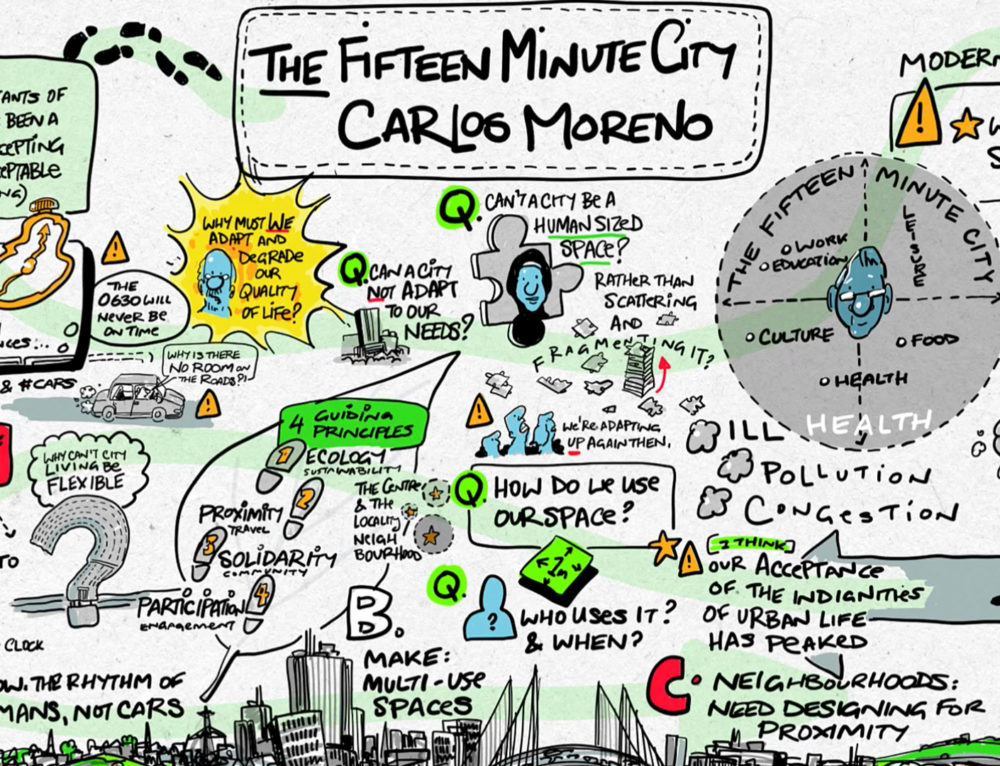 THE FIFTEEN MINUTE CITY
CARLOS MORENO
ANTS OF
BEEN A
CEPTING
CEPTABLE
NG)
THE
0630 WILL
NEVER BE
ON TIME
NCES...
& #CARS
WHY IS THERE
NO ROOM ON
THE ROADS?!
WHY MUST WE
ADAPT AND
DEGRADE
OUR
QUALITY
OF LIFE?
Q. CAN A CITY
NOT ADAPT
TO OUR
NEEDS?
Q. CAN'T A CITY BE A
HUMAN SIZED
SPACE?
RATHER THAN
SCATTERING
AND
FRAGMENTING IT?
WE'RE ADAPTING
UP AGAIN THEN.
MODERN
THE FIFTEEN MINUTE CITY
WORK
EDUCATION
LEISURE
CULTURE
FOOD
HEALTH
ILL HEALTH
POLLUTION
CONGESTION
WHY CAN'T CITY
LIVING BE
FLEXIBLE
TO
CLOCK
OW. THE RHYTHM OF
MANS, NOT CARS
4 GUIDING
PRINCIPLES
1 ECOLOGY
SUSTAINABILITY
2
PROXIMITY
TRAVEL
3 SOLIDARITY
COMMUNITY
PARTICIPATION 4
ENGAGEMENT
THE CENTRE
& THE
LOCALITY
NEIGH
BOURHOOD
B.
MAKE:
MULTI-USE
SPACES
Q. HOW DO WE USE
OUR SPACE?
Q.
?
WHO USES IT?
& WHEN?
I THINK
OUR ACCEPTANCE
OF THE INDIGNITIES
OF URBAN LIFE
HAS PEAKED
C. NEIGHBOURHOODS:
NEED DESIGNING FOR
PROXIMITY